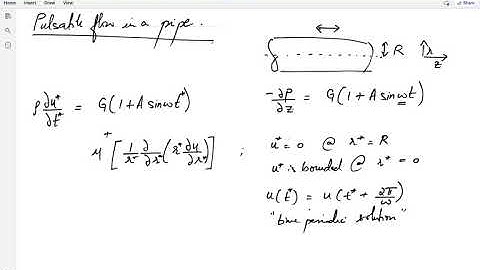 Home Insert Draw View
Share
Pulsatile flow in a pipe.
R
r
z
ρ ∂u*/∂t* = G(1+A sinωt*)
+
μ [1/r* ∂/∂r*(r* ∂u/∂r*)] ;
-∂p/∂z = G(1+A sinωt)
u* = 0 @ r* = R
u* is bounded @ r* = 0
u(t*) = u(t* + 2π/ω)
"time periodic solution"